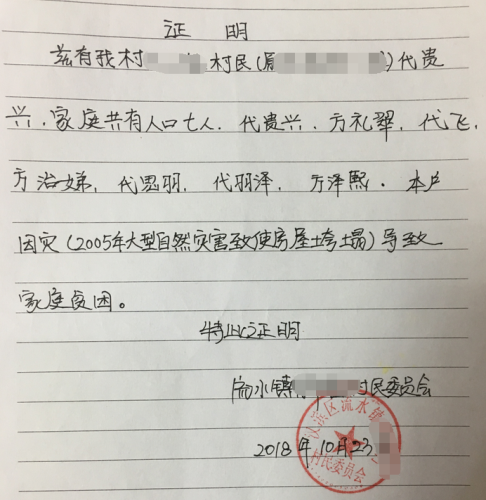 证 明
兹有我村 村民(原 )代贵
兴.家庭共有人口七人.代贵兴.方礼翠,代飞,
方治娣,代思羽,代羽泽,方泽熙.本户
因灾(2005年大型自然灾害致使房屋垮塌)导致
家庭贫困。
特此证明
流水镇 村民委员会
2018年10月23
汉滨区流水镇
村民委员会